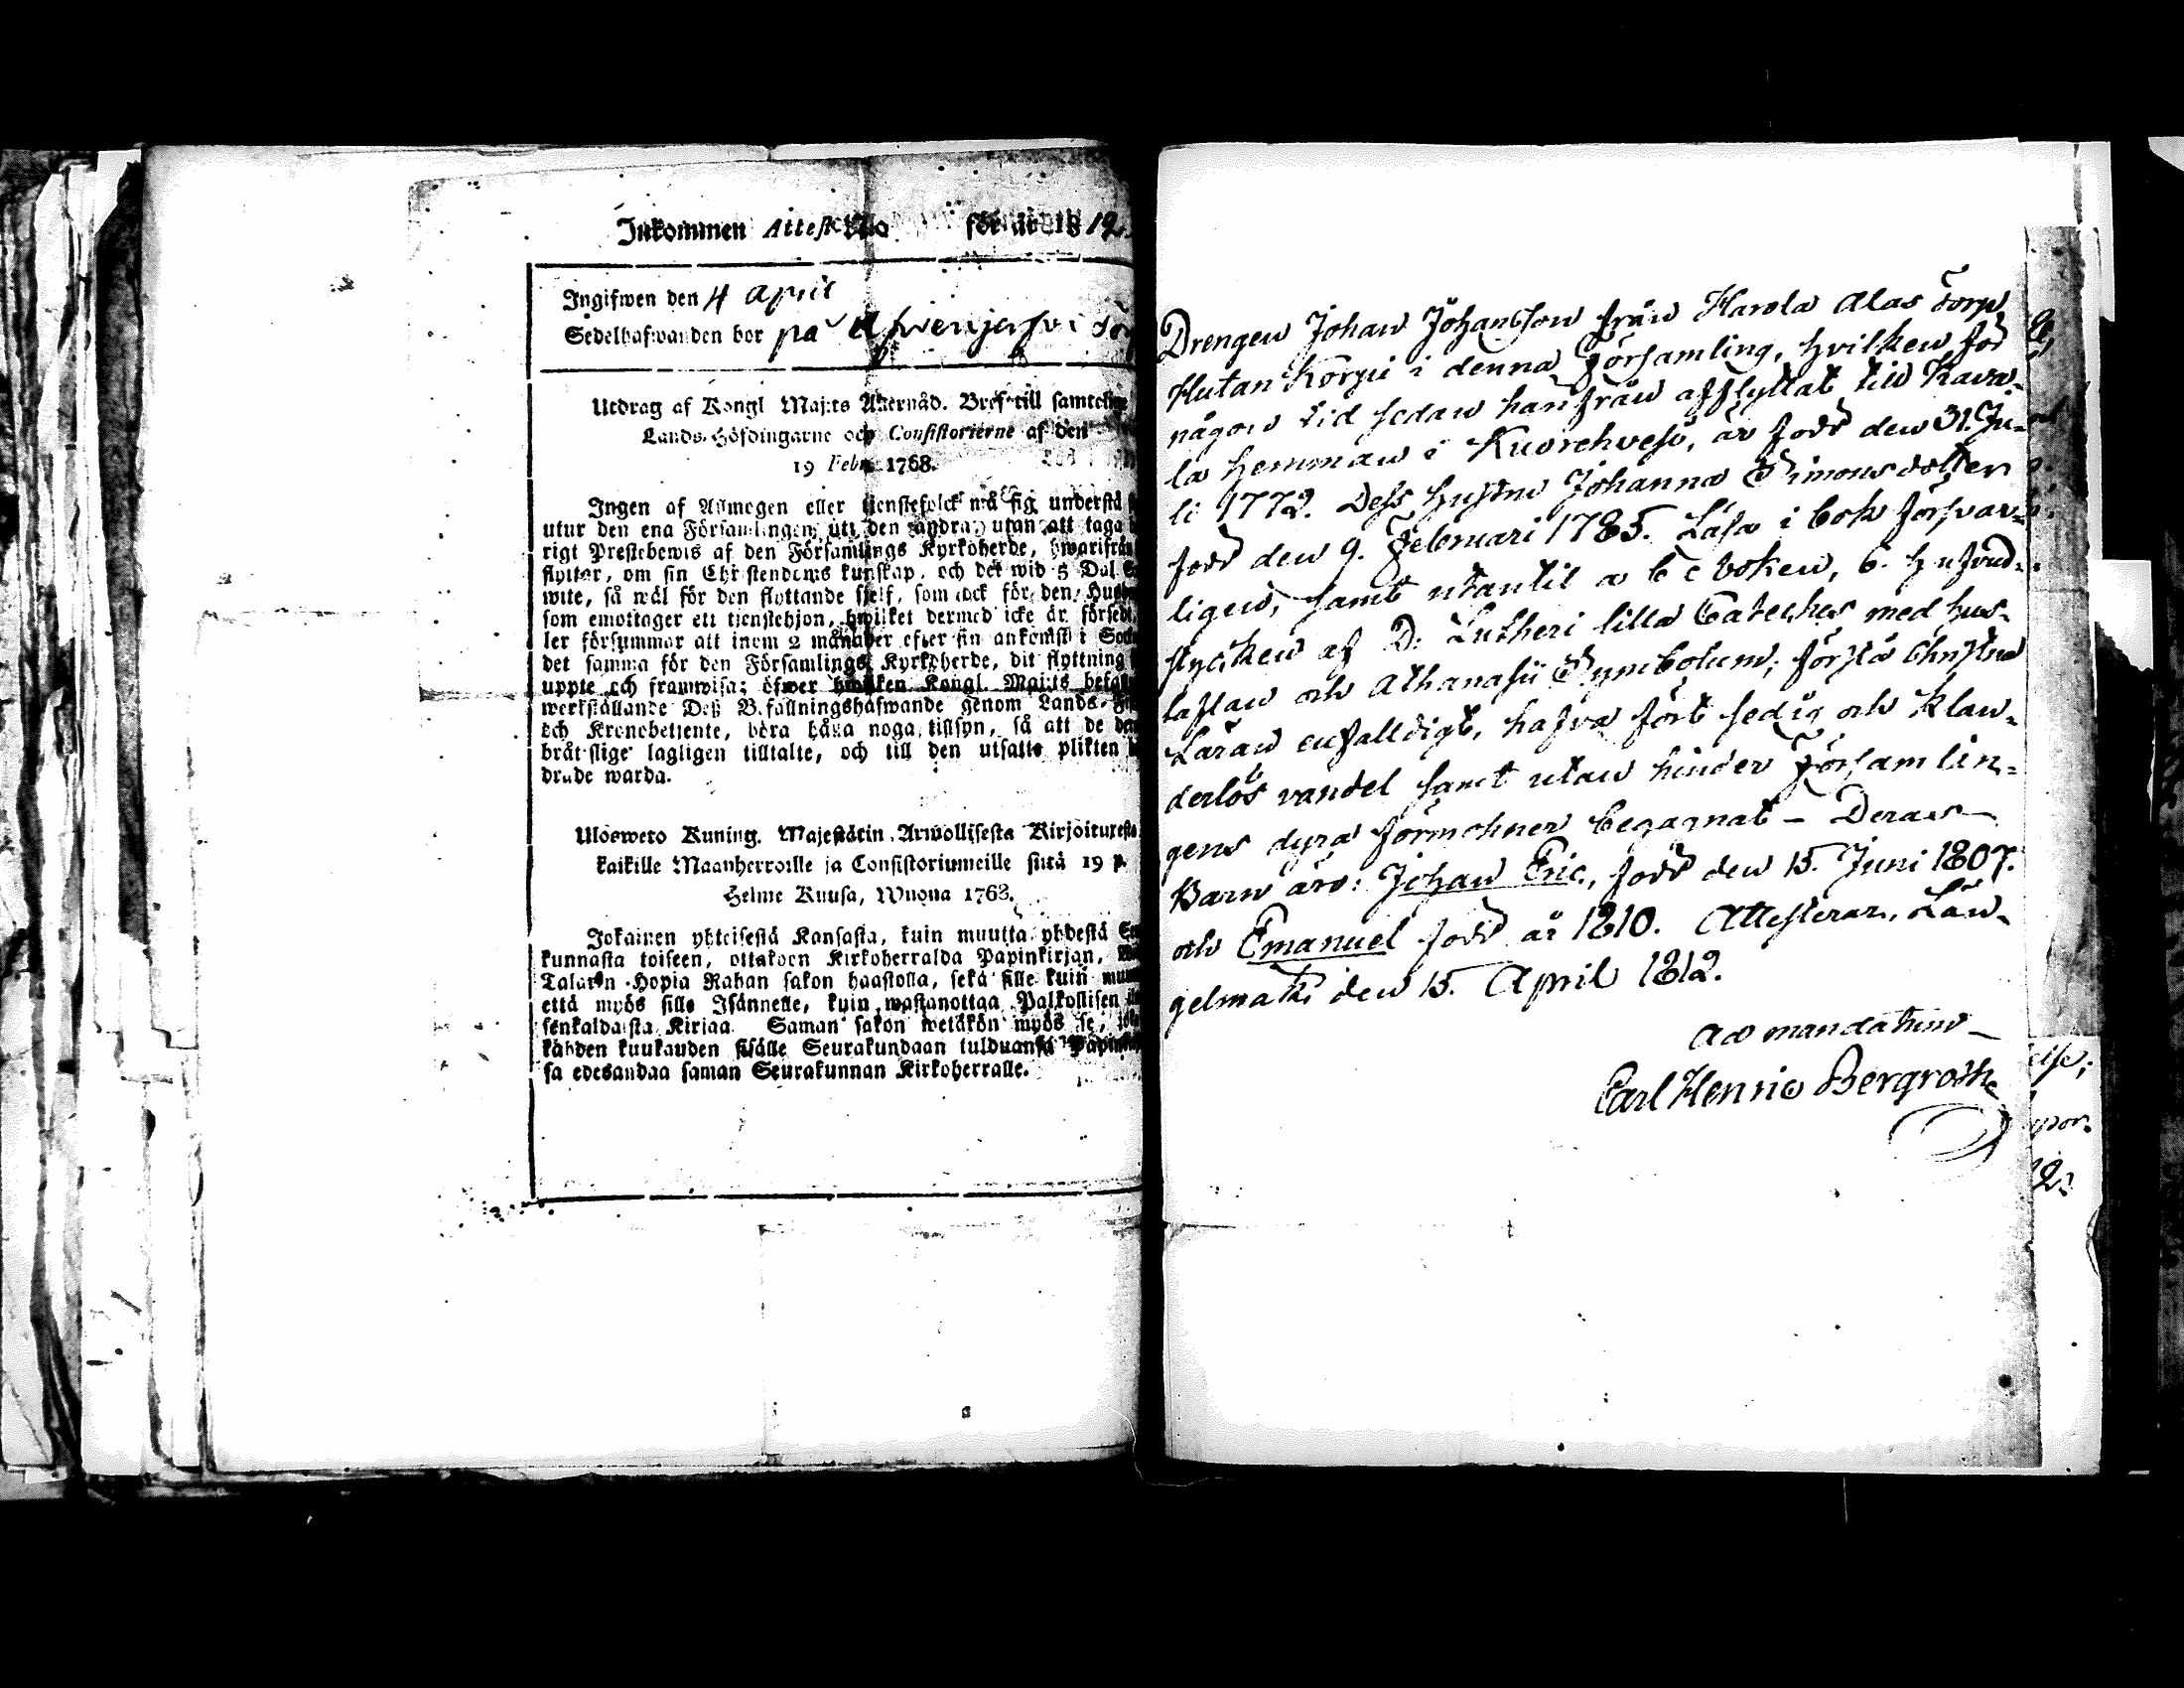 Inkommen Attest No för år 1812.
Ingifwen den 4 April
Sedelhafwanden bor på
Utdrag af Kongl Maj:ts Allernåd. Bref till samtelige
Lands-Höfdingarne och Consistorierne af den
19 Febr. 1768.
Ingen af Allmogen eller tjenstefolck må sig understå
utur den ena Församlingen uti den andra, utan att taga
rigt Prestebewis af den Församlings Kyrkoherde, hwarifrån
flyttar, om sin Christendoms kunskap, och det wid 5 Dal. S
wite, så wäl för den flyttande sjelf, som ock för den Husb
som emottager ett tjenstehjon, hwilket dermed icke är försedt,
ler försummar att inom 2 månader efter sin ankomst i Sock
det samma för den Församlings Kyrkoherde, dit flyttning
uppte och framwisa; öfwer hwilken Kongl. Maj:ts befall
werkställande Deß B.fallningshafwande genom Lands-
och Kronobetjente, böra hålla noga tillsyn, så att de
brått slige lagligen tilltalte, och till den utsatte plikten
drade warda.
Ulosweto Kuning. Majestätin Armollisesta Kirjoituxesta
kaikille Maanherroille ja Consistoriumeille siitä 19 p.
Helme Kuusa, Wuona 1763.
Jokainen yhteisestä Kansasta, kuin muutta yhdestä
kunnasta toiseen, ottakoon Kirkoherralda Papinkirjan,
Talarin Hopia Rahan sakon haastolla, sekä sille kuin
että myös sille Isännelle, kuin wastanottaa Palkollisen
senkaldaista Kirjaa. Saman sakon wetäkön myös se,
kahden kuukauden sisälle Seurakundaan tulduansa Papin
sa edesandaa saman Seurakunnan Kirkoherralle.
Drengen Johan Johansson från Harola Alas Torp
Hutan Korpi i denna Församling, hvilken för
någon tid sedan hanfrån afflyttat till Kava-
la hemman i Kuorehvesi, är född den 31. Ju-
li 1772. Dess hustru Johanna Simonsdotter
född den 9. Februari 1785. Läsa i bok försvar-
ligen, samt utantil a b c boken, 6. hufvud-
stycken af D: Lutheri lilla Cateches med hus-
taflan och Athanasii Symbolum, förstå Christna
Läran enfalldigt, hafva fört sedig och klan-
derlös vandel samt utan hinder Församlin-
gens dyra förmohner begagnat – Deras
Barn äro: Johan Eric, född den 15. Juni 1807.
och Emanuel född år 1810. Attesterar, Län-
gelmäki den 15. April 1812.
Ad mandatum
Carl Henric Bergroth